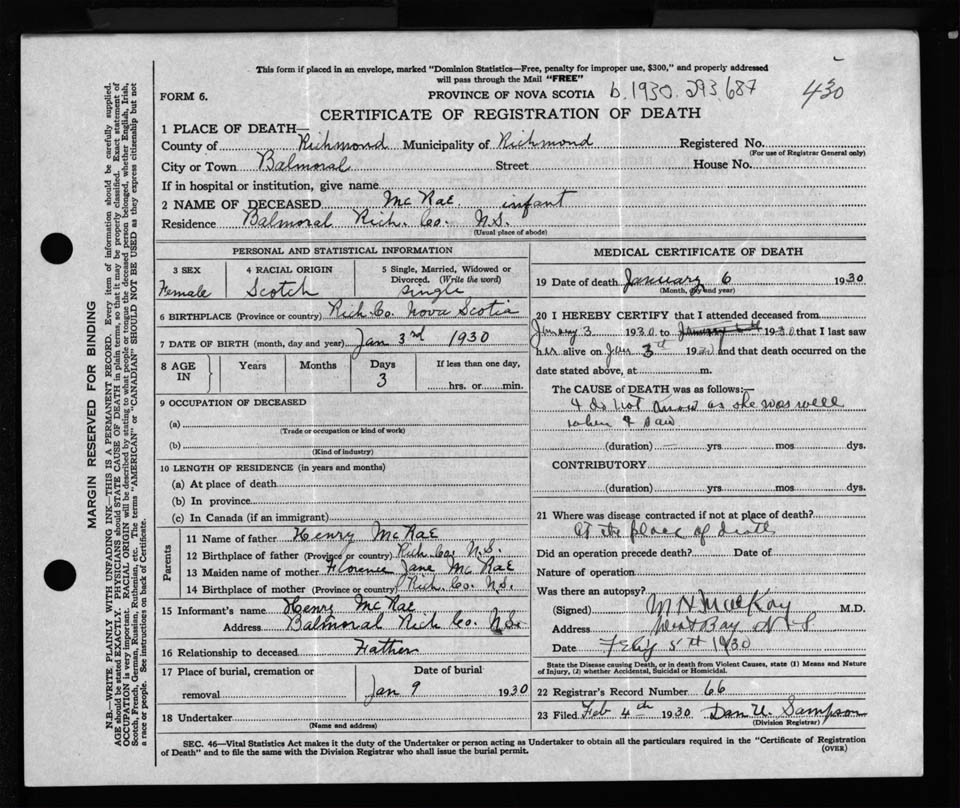 This form if placed in an envelope, marked "Dominion Statistics—Free, penalty for improper use, $300," and properly addressed
will pass through the Mail "FREE"
FORM 6.
PROVINCE OF NOVA SCOTIA b.1930.293.687 430
CERTIFICATE OF REGISTRATION OF DEATH
1 PLACE OF DEATH—
County of Richmond Municipality of Richmond Registered No.
(For use of Registrar General only)
City or Town Balmoral Street House No.
If in hospital or institution, give name
2 NAME OF DECEASED McRae infant
Residence Balmoral Rich. Co. N.S.
(Usual place of abode)
PERSONAL AND STATISTICAL INFORMATION
3 SEX Female
4 RACIAL ORIGIN Scotch
5 Single, Married, Widowed or Divorced. (Write the word) Single
6 BIRTHPLACE (Province or country) Rich. Co. Nova Scotia
7 DATE OF BIRTH (month, day and year) Jan 3rd 1930
8 AGE IN Years Months Days If less than one day,
3 hrs. or min.
9 OCCUPATION OF DECEASED
(a)
(Trade or occupation or kind of work)
(b)
(Kind of industry)
10 LENGTH OF RESIDENCE (in years and months)
(a) At place of death
(b) In province
(c) In Canada (if an immigrant)
Parents
11 Name of father Henry McRae
12 Birthplace of father (Province or country) Rich. Co. N.S.
13 Maiden name of mother Florence Jane McRae
14 Birthplace of mother (Province or country) Rich. Co. N.S.
15 Informant's name Henry McRae
Address Balmoral Rich Co. N.S.
16 Relationship to deceased Father
17 Place of burial, cremation or removal
Date of burial
Jan 9 1930
18 Undertaker
(Name and address)
MEDICAL CERTIFICATE OF DEATH
19 Date of death January 6 1930
(Month, day and year)
20 I HEREBY CERTIFY that I attended deceased from
January 3 1930 to 1930 that I last saw
h alive on Jan 3th 1930 and that death occurred on the
date stated above, at m.
The CAUSE of DEATH was as follows:—
I do not know as she was well
when I saw
(duration) yrs mos dys.
CONTRIBUTORY
(duration) yrs mos dys.
21 Where was disease contracted if not at place of death?
At the place of death
Did an operation precede death? Date of
Nature of operation
Was there an autopsy?
(Signed) MacKay M.D.
Address West Bay N.S
Date Feby 5th 1930
State the Disease causing Death, or in death from Violent Causes, state (1) Means and Nature
of Injury, (2) whether Accidental, Suicidal or Homicidal.
22 Registrar's Record Number 66
23 Filed Feb 4th 1930 Dan U. Sampson
(Division Registrar)
SEC. 46—Vital Statistics Act makes it the duty of the Undertaker or person acting as Undertaker to obtain all the particulars required in the "Certificate of Registration
of Death" and to file the same with the Division Registrar who shall issue the burial permit.
(OVER)
MARGIN RESERVED FOR BINDING
N.B.—WRITE PLAINLY WITH UNFADING INK—THIS IS A PERMANENT RECORD. Every item of information should be carefully supplied.
AGE should be stated EXACTLY. PHYSICIANS should STATE CAUSE OF DEATH in plain terms, so that it may be properly classified. Exact statement of
OCCUPATION is very important. RACIAL ORIGIN will be described by stating to what people or tongue the deceased person belonged, whether English, Irish,
Scotch, French, German, Russian, Ruthenian, etc. The terms "AMERICAN" or "CANADIAN" SHOULD NOT BE USED as they express citizenship but not
a race or people. See instructions on back of Certificate.